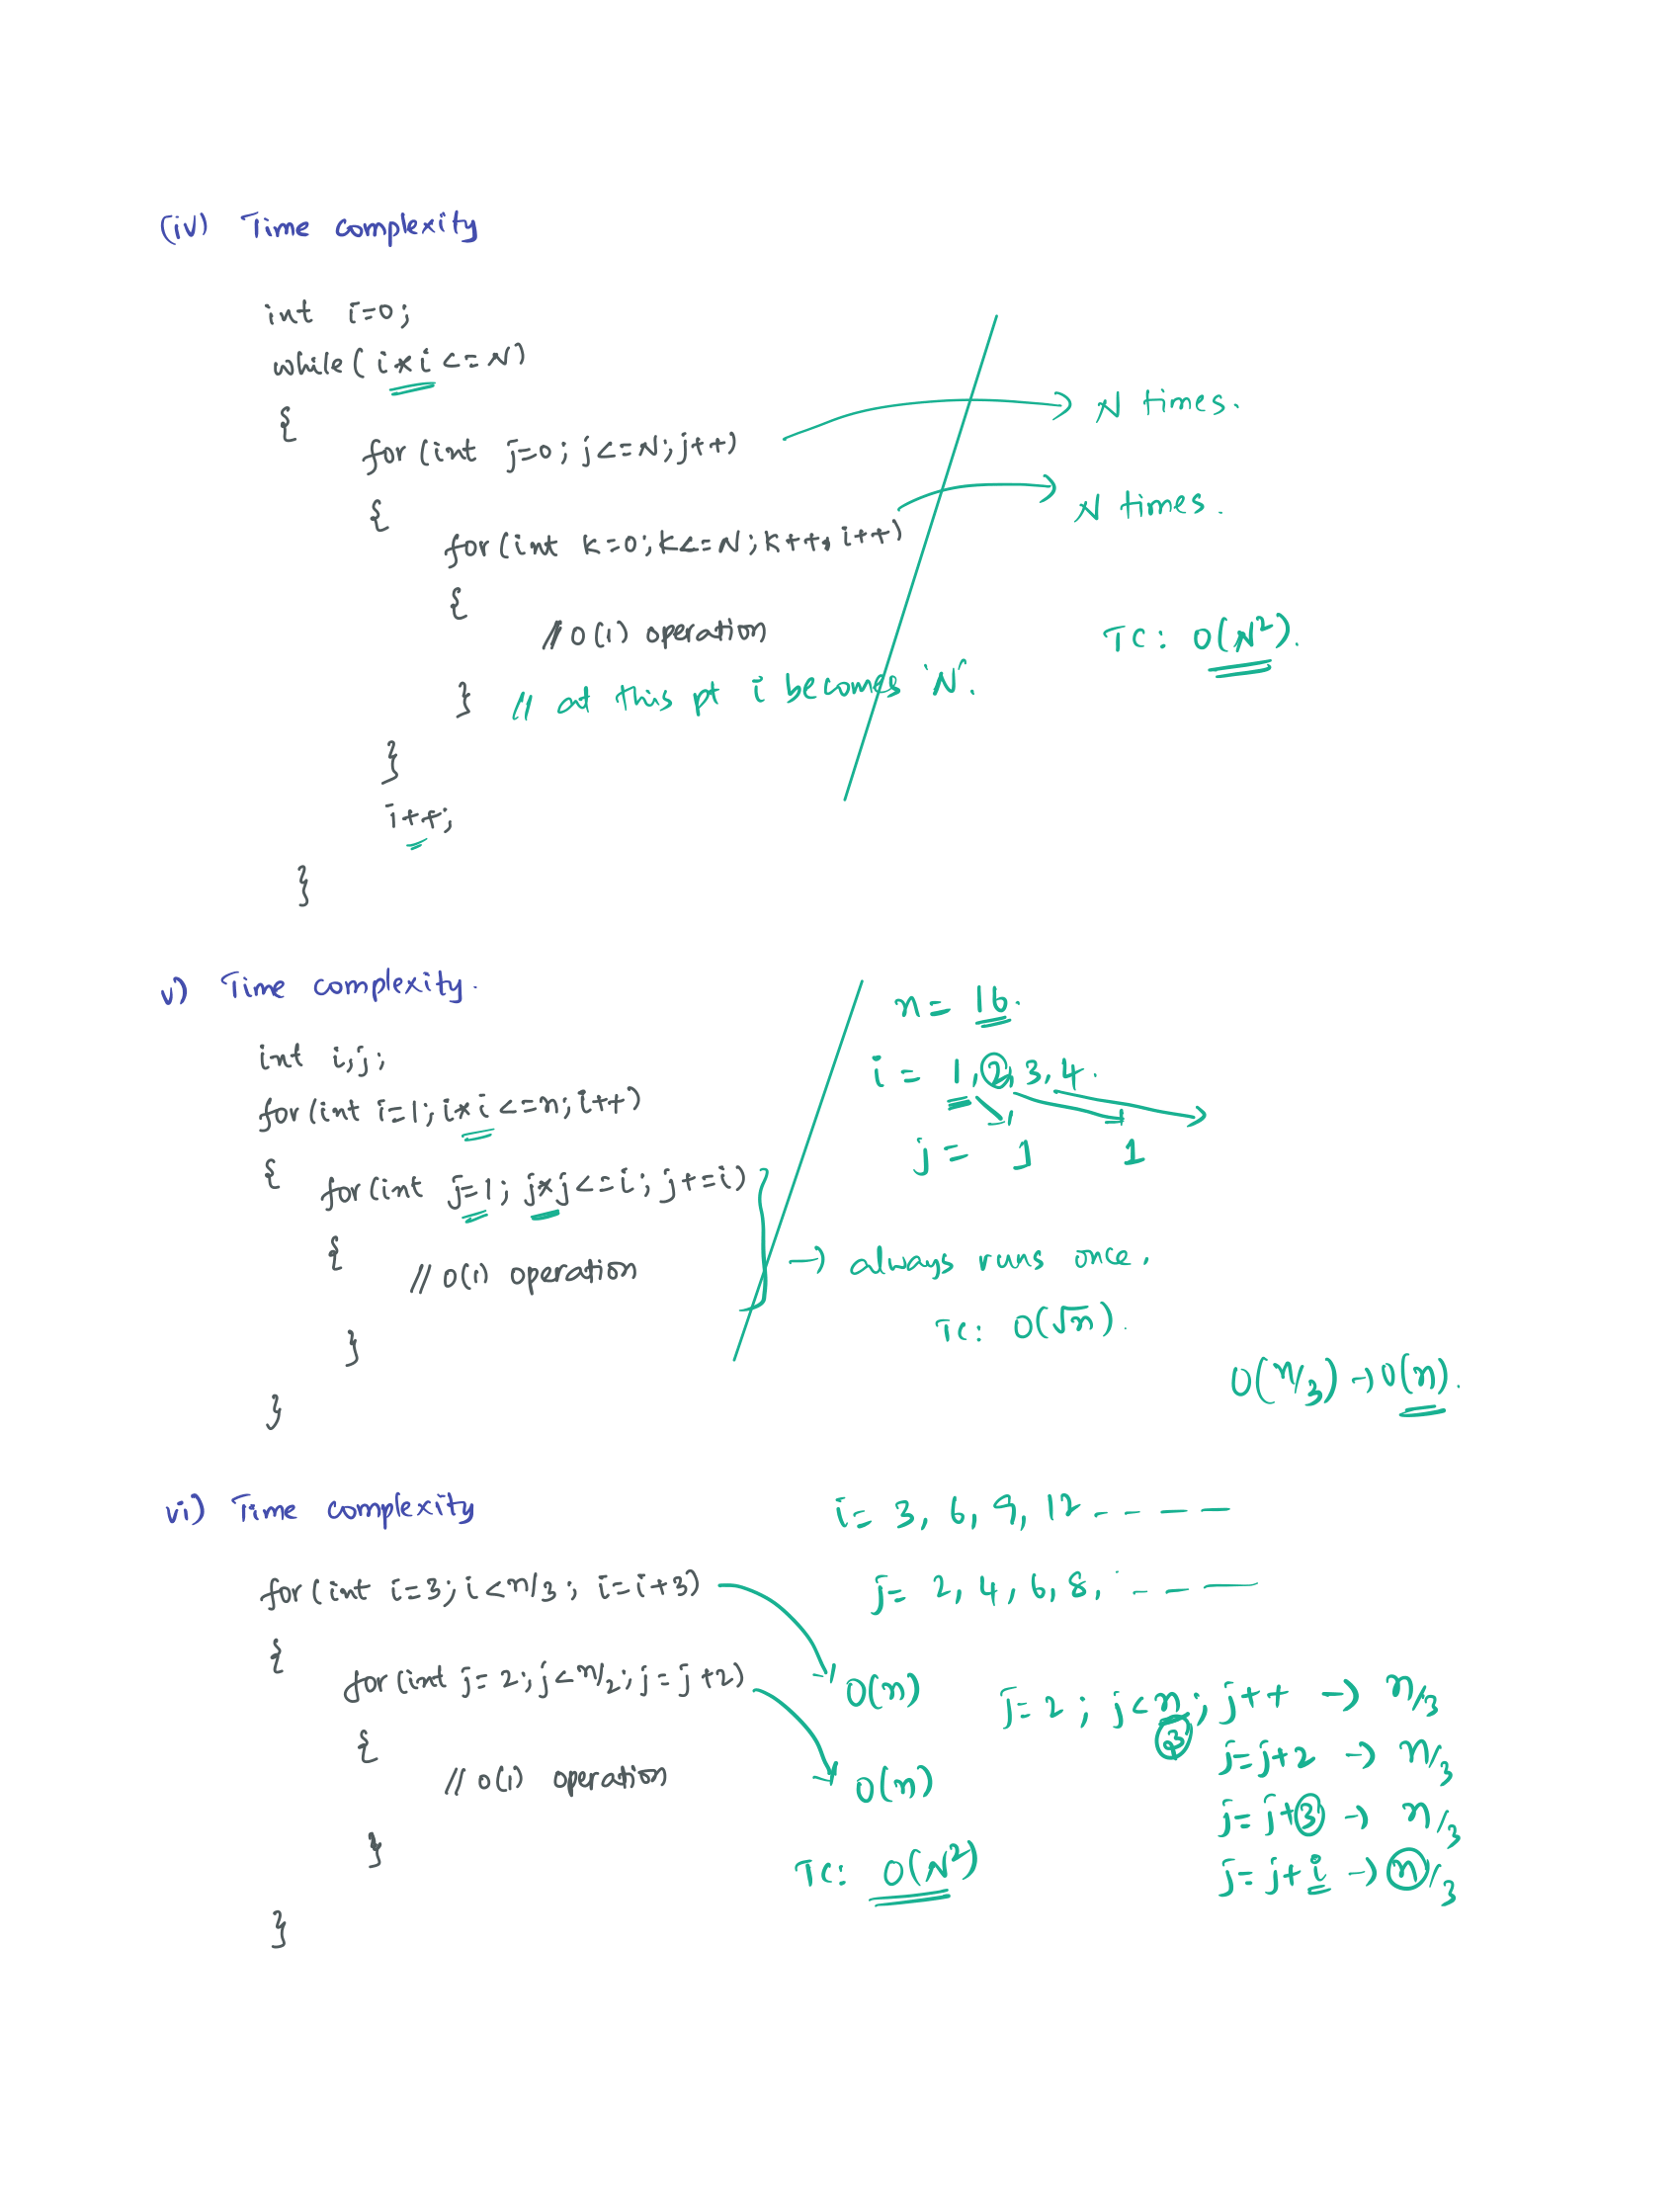 (iv) Time complexity
int i=0;
while( i*i <= N)
{
for (int j=0; j<=N; j++)
→ N times.
{
for(int k=0; k<=N; k++, i++)
→ N times.
{
// O(1) operation
TC: O(N²).
} // at this pt i becomes 'N'.
}
i++;
}
v) Time complexity.
int i,j;
for(int i=1; i*i <=n; i++)
{
for(int j=1; j*j <=i; j+=i)
{
// O(1) operation
}
}
n= 16.
i = 1, 2, 3, 4.
j = 1 1
→ always runs once.
TC: O(√n).
O(n/3) → O(n).
vi) Time complexity
for(int i=3; i<n/3; i=i+3)
{
for(int j=2; j<n/2; j=j+2)
{
// O(1) operation
}
}
i= 3, 6, 9, 12 - - - -
j= 2, 4, 6, 8, - - -
→ O(n)
→ O(n)
TC: O(N²)
j=2; j<n/3; j++ → n/3
j=j+2 → n/3
j=j+3 → n/3
j=j+i → n/3